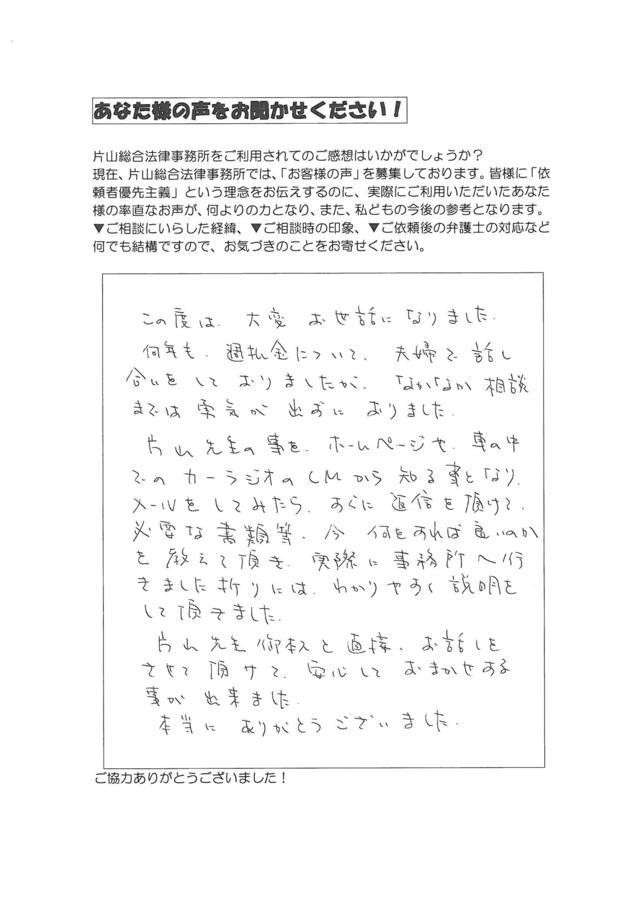 あなた様の声をお聞かせください！
片山総合法律事務所をご利用されてのご感想はいかがでしょうか？
現在、片山総合法律事務所では、「お客様の声」を募集しております。皆様に「依
頼者優先主義」という理念をお伝えするのに、実際にご利用いただいたあなた
様の率直なお声が、何よりの力となり、また、私どもの今後の参考となります。
▼ご相談にいらした経緯、▼ご相談時の印象、▼ご依頼後の弁護士の対応など
何でも結構ですので、お気づきのことをお寄せください。
この度は、大変 お世話になりました。
何年も、過払金について、夫婦で話し
合いをして おりましたが、なかなか相談
までは勇気が出ずに おりました。
片山先生の事を、ホームページや、車の中
でのカーラジオのCMから知る事となり、
メールをしてみたら、すぐに返信を頂けて、
必要な書類等、今 何をすれば良いのか
を教えて頂き、実際に事務所へ行
きました折りには、わかりやすく説明を
して頂きました。
片山先生御本人と直接、お話しを
させて頂けて、安心しておまかせする
事が出来ました。
本当に ありがとうございました。
ご協力ありがとうございました！